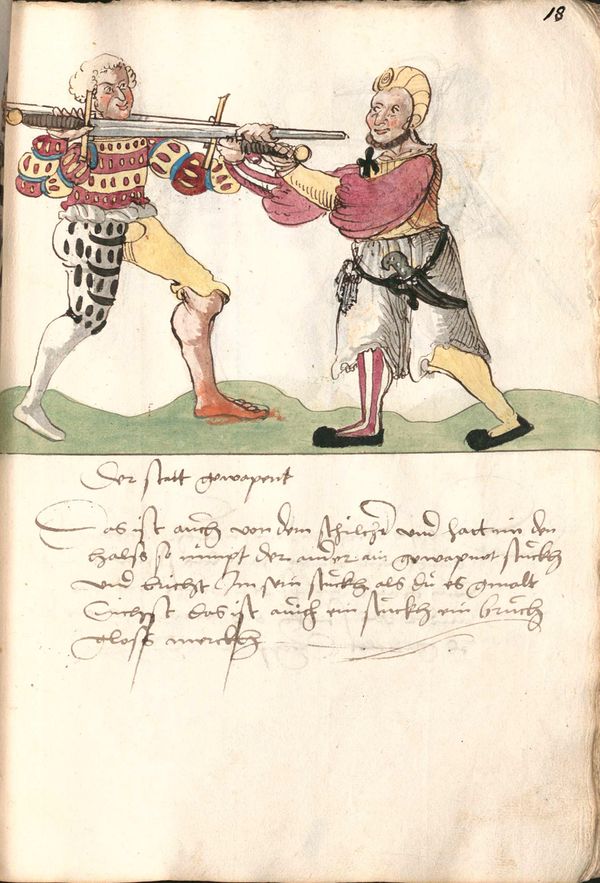 18
der statt gewapent
Das ist auch von dem schilcher und hatt im den
halss so nimpt der ander ain gewapnot stuckh
und bricht Im sein stuckh als du es gmalt
Sichst das ist auch ein stuckh ein bruch
gloss merckh